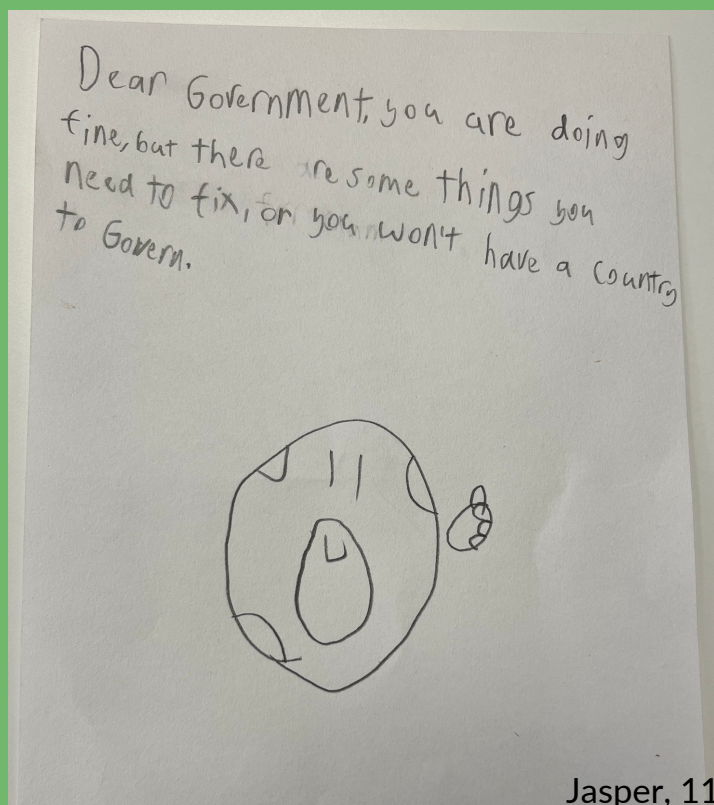 Dear Government, you are doing
fine, but there are some things you
need to fix, or you won't have a country
to Govern.
Jasper, 11